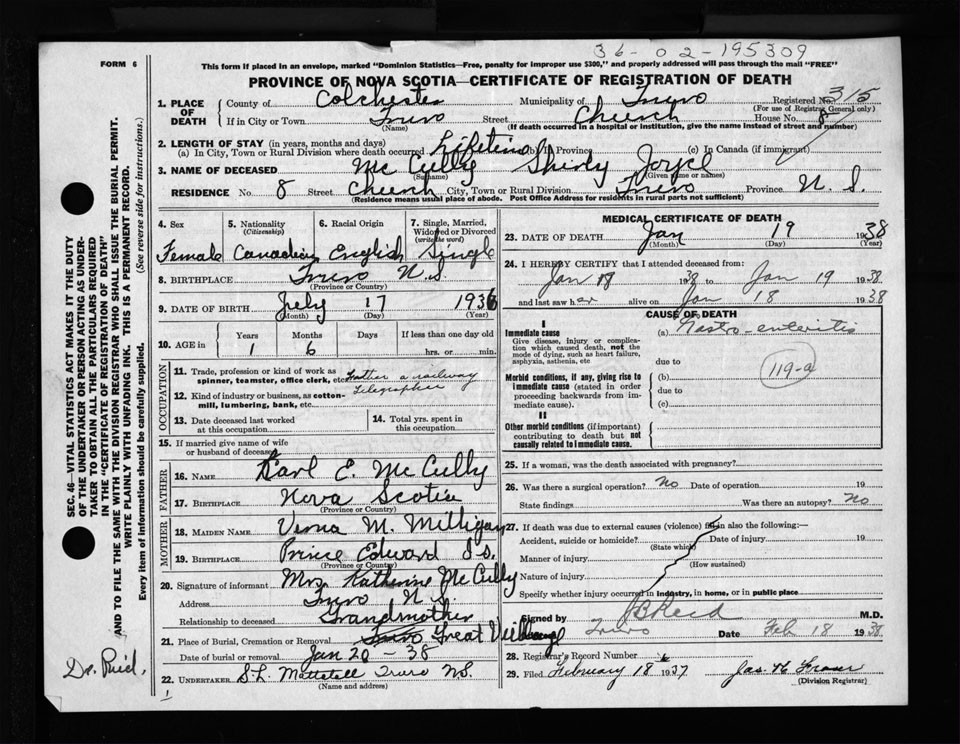 36-02-195309
FORM 6
This form if placed in an envelope, marked "Dominion Statistics—Free, penalty for improper use $300," and properly addressed will pass through the mail "FREE"
PROVINCE OF NOVA SCOTIA—CERTIFICATE OF REGISTRATION OF DEATH
1. PLACE OF DEATH
County of Colchester Municipality of Truro Registered No. 315
(For use of Registrar General only)
If in City or Town Truro Street Church House No. 8
(Name) (If death occurred in a hospital or institution, give the name instead of street and number)
2. LENGTH OF STAY (in years, months and days)
(a) In City, Town or Rural Division where death occurred Lifetime (b) In Province (c) In Canada (if immigrant)
3. NAME OF DECEASED McCully Shirly Joyce
(Surname) (Given name or names)
RESIDENCE No. 8 Street Church City, Town or Rural Division Truro Province N.S.
(Residence means usual place of abode. Post Office Address for residents in rural parts not sufficient)
4. Sex 5. Nationality (Citizenship) 6. Racial Origin 7. Single, Married, Widowed or Divorced (write the word)
Female Canadian English Single
8. BIRTHPLACE Truro N.S.
(Province or Country)
9. DATE OF BIRTH July 17 1936
(Month) (Day) (Year)
10. AGE in Years Months Days If less than one day old
1 6 hrs. or min.
OCCUPATION
11. Trade, profession or kind of work as spinner, teamster, office clerk, etc. Father a railway
Telegrapher
12. Kind of industry or business, as cotton-mill, lumbering, bank, etc.
13. Date deceased last worked at this occupation
14. Total yrs. spent in this occupation
15. If married give name of wife or husband of deceased
FATHER
16. NAME Karl E. McCully
17. BIRTHPLACE Nova Scotia
(Province or Country)
MOTHER
18. MAIDEN NAME Verna M. Milligan
19. BIRTHPLACE Prince Edward Is.
(Province or Country)
20. Signature of informant Mrs. Katherine McCully
Address Truro N.S.
Relationship to deceased Grandmother
21. Place of Burial, Cremation or Removal Truro Great Village
Date of burial or removal Jan 20 - 38
22. UNDERTAKER S.L. Mattatall Truro NS.
(Name and address)
MEDICAL CERTIFICATE OF DEATH
23. DATE OF DEATH Jan 19 1938
(Month) (Day) (Year)
24. I HEREBY CERTIFY that I attended deceased from:
Jan 18 1938 to Jan 19 1938
and last saw her alive on Jan 18 1938
CAUSE OF DEATH
I
Immediate cause
Give disease, injury or complication which caused death, not the mode of dying, such as heart failure, asphyxia, asthenia, etc
(a) Gastro-enteritis
due to
119-a
Morbid conditions, if any, giving rise to immediate cause (stated in order proceeding backwards from immediate cause).
(b)
due to
(c)
II
Other morbid conditions (if important) contributing to death but not causally related to immediate cause.
25. If a woman, was the death associated with pregnancy?
26. Was there a surgical operation? No Date of operation 19
State findings Was there an autopsy? No
27. If death was due to external causes (violence) fill in also the following:—
Accident, suicide or homicide? Date of injury 19
(State which)
Manner of injury
(How sustained)
Nature of injury
Specify whether injury occurred in industry, in home, or in public place
Signed by JB Reid M.D.
Truro Date Feb 18 1938
28. Registrar's Record Number
29. Filed February 18 1937 Jas. H. Fraser
(Division Registrar)
SEC. 46—VITAL STATISTICS ACT MAKES IT THE DUTY OF THE UNDERTAKER OR PERSON ACTING AS UNDERTAKER TO OBTAIN ALL THE PARTICULARS REQUIRED IN THE "CERTIFICATE OF REGISTRATION OF DEATH" AND TO FILE THE SAME WITH THE DIVISION REGISTRAR WHO SHALL ISSUE THE BURIAL PERMIT.
WRITE PLAINLY WITH UNFADING INK. THIS IS A PERMANENT RECORD.
Every item of information should be carefully supplied. (See reverse side for instructions.)
Dr. Reid.
1